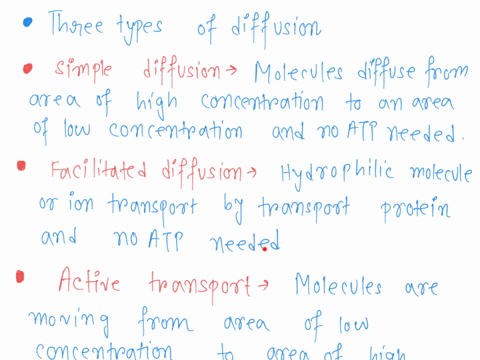 Three types of diffusion
Simple diffusion → Molecules diffuse from
area of high concentration to an area
of low concentration and no ATP needed.
Facilitated diffusion → Hydrophilic molecule
or ion transport by transport protein
and no ATP needed
Active transport → Molecules are
moving from area of low
concentration to area of high